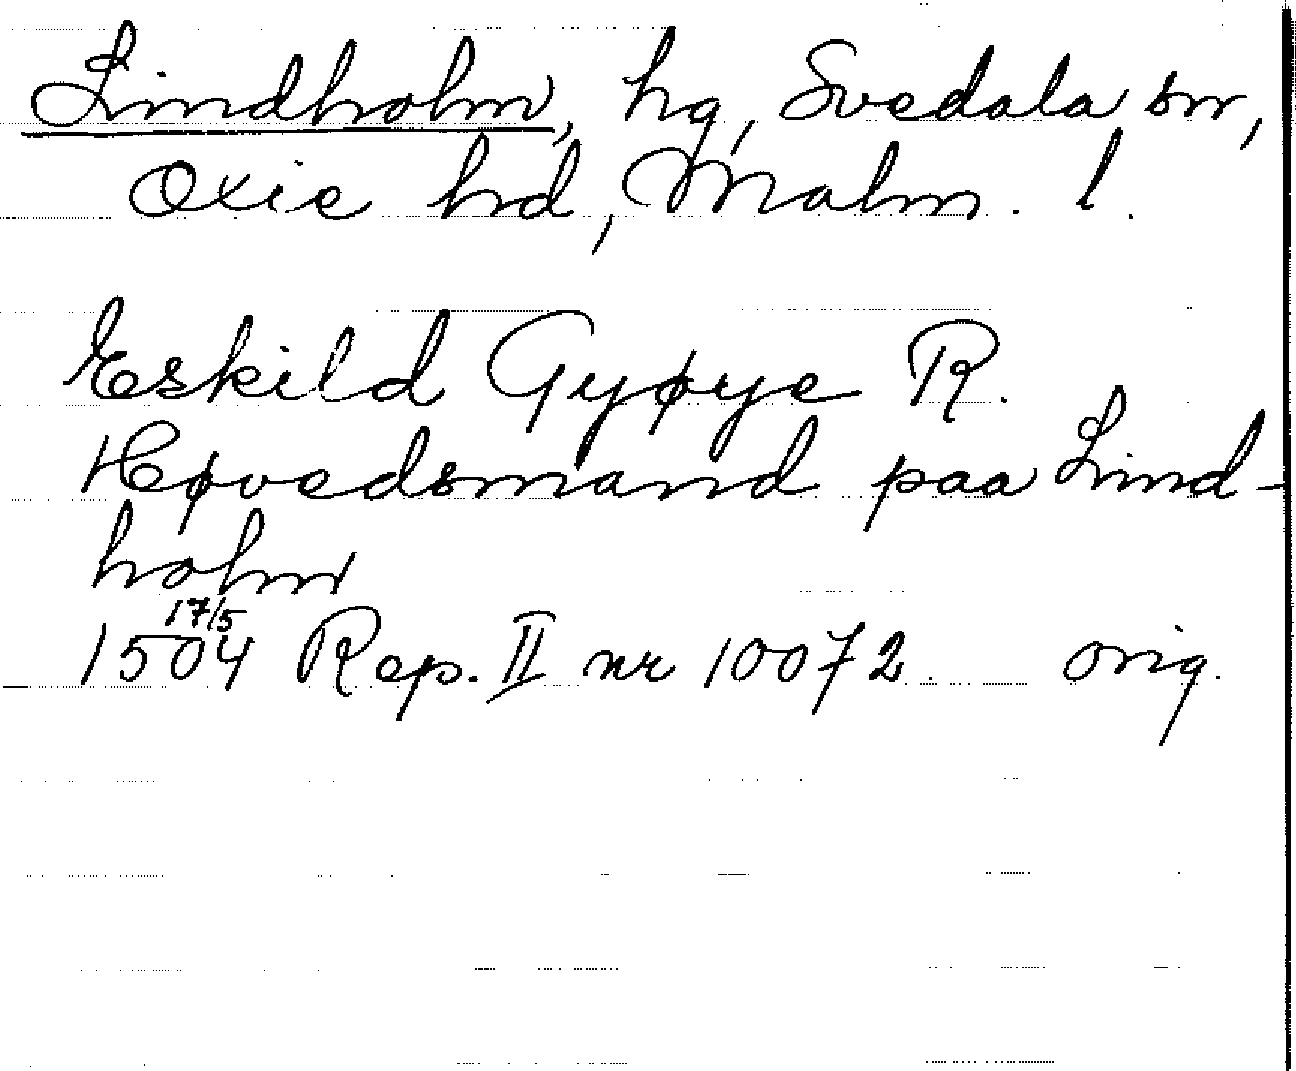 Lindholm, hg, Svedala sn,
Oxie hd, Malm. l.
Eskild Gyøye R.
Høvedsmand paa Lind-
holm
17/5
1504 Rep. II nr 10072. orig.